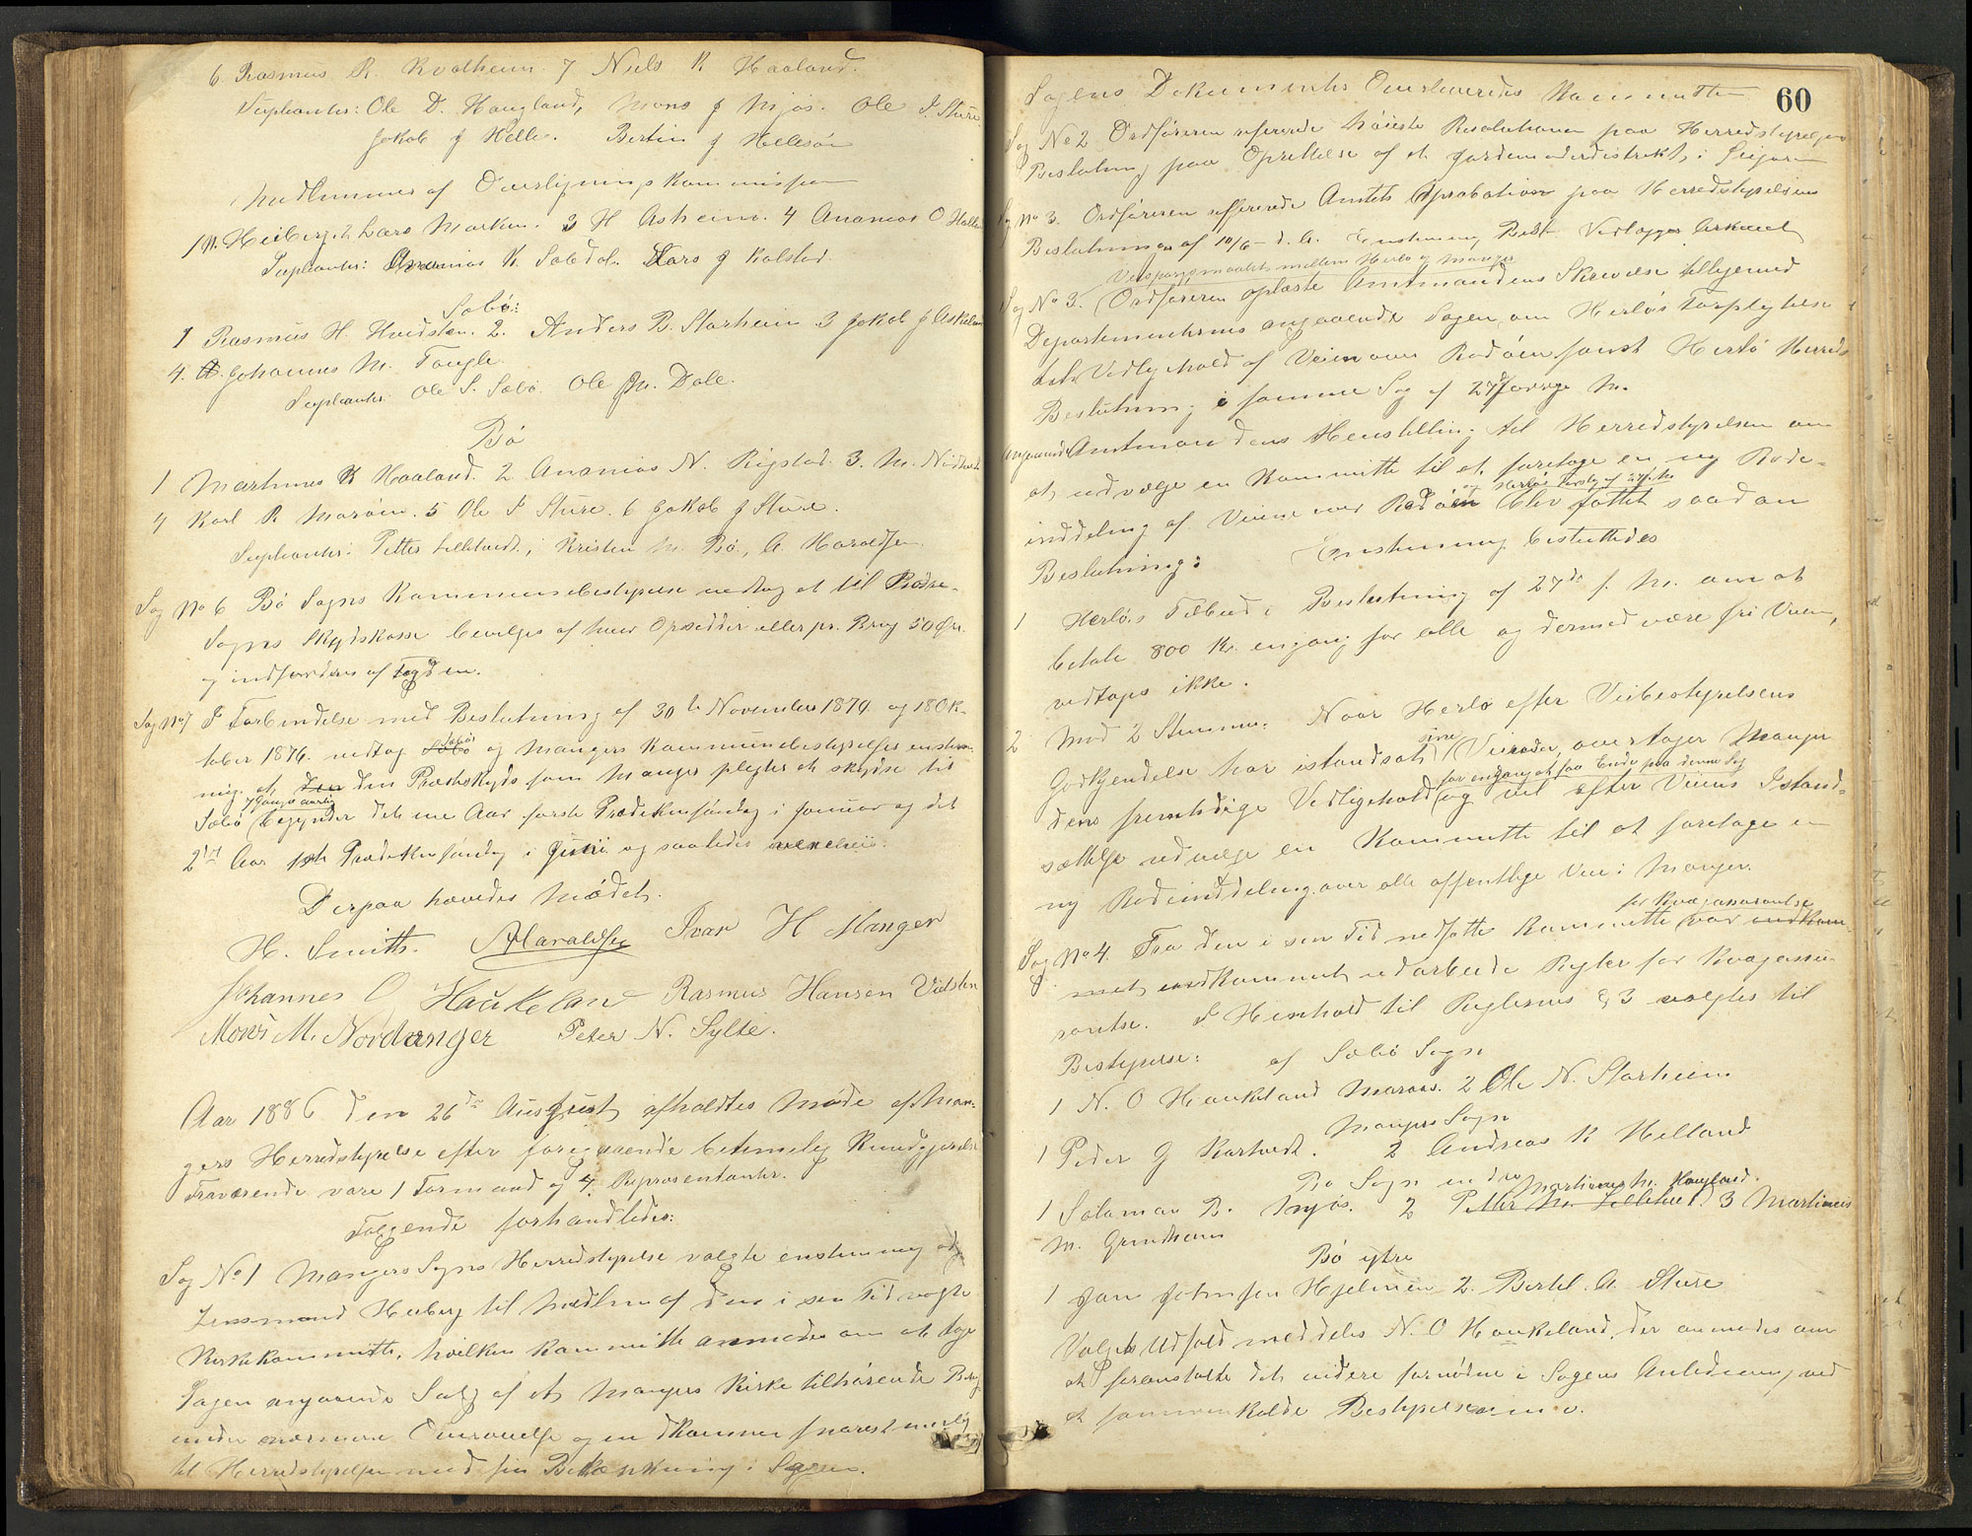 6. Rasmus R. Kvalheim. 7 Niels K Haaland.
Supleanter: Ole D. Haugland, Mons J Mjøs. Ole I. Sture.
Jakob J Helle. Bertin J Hellesøe
Medlemmer af Overligningskommissionen
1 N. Heiberg. 2 Lars Marken. 3 H Askeim. 4 Ananias O Halle
Supleanter: Ananias K. Sæbdal. Lars J Kolstad.
Sæbø:
1 Rasmus H. Hvidsten. 2. Anders R. Starheim 3 Jakob J Askeland
4. Johannes M. Fangle
Supleanter Ole S. Sæbø. Ole M. Dale.
Bø
1 Martinus K Haaland. 2 Ananias N. Rigstad. 3. M. Nidtveit
4 Karl R Marøen. 5 Ole I Sture. 6 Jakob J Sture.
Supleanter: Petter Lilletvedt, Kristen M. Bø, A. Haraldsen.
Sag No 6 Bø Sogns Kommunebestyrelse vedtog at til Bø
Sogns Skydskasse bevilges af hver Opsidder eller pr. Brug 50 Øre
og indfordres af Fogden.
Sag No 7 I Forbindelse med Beslutning af 30te November 1874 og 18 Ok-
tober 1876. vedtog Sæbøs og Mangers Kommunebestyrelser enstem-
mig at den Præsteskyds som Manger pligter at skydse til
7 Gange aarlig
Sæbø begynder det ene Aar første Prædikensøndag i Januar og det
2det Aar 1ste Prædikensøndag i Juni og saaledes vexelviis.
Derpaa hævedes Mødet.
H. Smith. AHaraldsen Ivar H Manger
Johannes O Haukeland Rasmus Hansen Vidsten
Mons M. Nordanger Peter N. Sylte.
Aar 1886 den 26de August afholdtes Møde af Man-
gers Herredstyrelse efter foregaaende betimelig Kundgjørelse
Fraværende vare 1 Formand og 4 Repræsentanter.
Følgende forhandledes:
Sag No 1 Mangers Sogns Herredstyrelse valgte enstemmig
Lensmand Heiberg til Medlem af den i sen Tid valgte
Kirkekommitte, hvilken Kommitte anmodes om at tage
Sagen angaaende Salg af et Mangers Kirke tilhørende Brug
under nærmere Overveielse og indkommer snarest mulig
til Herredstyrelsen med sin Betænkning i Sagen.
60
Sagens Dokumenter Overleveredes Kommitteen
Sag No 2 Ordføreren refererede høieste Resolutioner paa Herredstyrelsens
Beslutning paa Oprettelse af et Jordemoderdistrikt i
Sag No 3. Ordføreren refererede Amtets Aprobation paa Herredstyrelsens
Beslutninger af 10/6 d. A. Enstemmig Besl. Vedlægges Arkivet
Veispørgsmaalet mellem Herlø og Manger
Sag No 3. Ordføreren oplæste Amtmandens Skrivelse tilligemed
Departementernes angaaende Sagen om Herløs Forpligtelse
Vedligehold af Veien over Radøen samt Herlø Herreds
Beslutning i samme Sag af 27de forrige M.
Angaaende Amtmandens Henstilling til Herredstyrelsen om
at udvælge en Kommitte til at foretage en ny Rode-
og Herløs Forslag af 27 f. M.
inddeling af Veiene over Radøen blev fattet saadan
Beslutning: Enstemmig besluttedes
1 Herløs Tilbud i Beslutning af 27de f. M. om at
betale 800 Kr. engang for alle og dermed være fri Veien,
vedtages ikke.
2 Mod 2 Stemmer. Naar Herlø efter Veibestyrelsens
sine
Godkjendelse har istandsat Veiroder, overtager Manger
for engang at faa Ende paa denne Sag
dens fremtidige Vedligehold og vil efter Veiens Istand-
sættelse udvælge en Kommitte til at foretage en
ny Rodeinddeling over alle offentlige Veie i Manger.
for Kvægassurantse
Sag No 4. Fra den i sen Tid nedsatte Kommitte var indkom-
met indkommet udarbeide Regler for Kvægassu-
rantse. I Henhold til Reglernes § 3 valgtes til
Bestyrelse: af Sæbø Sogn
1 N. O Haukeland Marøes. 2 Ole N. Starheim
Mangers Sogn
1 Peder G Kartveit. 2 Andreas K Helland
Bø Sogn indre Martinus M. Haugland.
1 Salamon B. Mjøs. 2 Petter M. Lilletvedt 3 Martinus
M. Grindheim
Bø ytre
1 Jan Johnsen Hjelmen 2. Bertel A. Sture
Valgets Udfald meddeles N. O Haukeland, der anmodes om
at foranstalte det videre fornødne i Sagens Anledning, ved
at sammenkalde Bestyrelsen m. v.